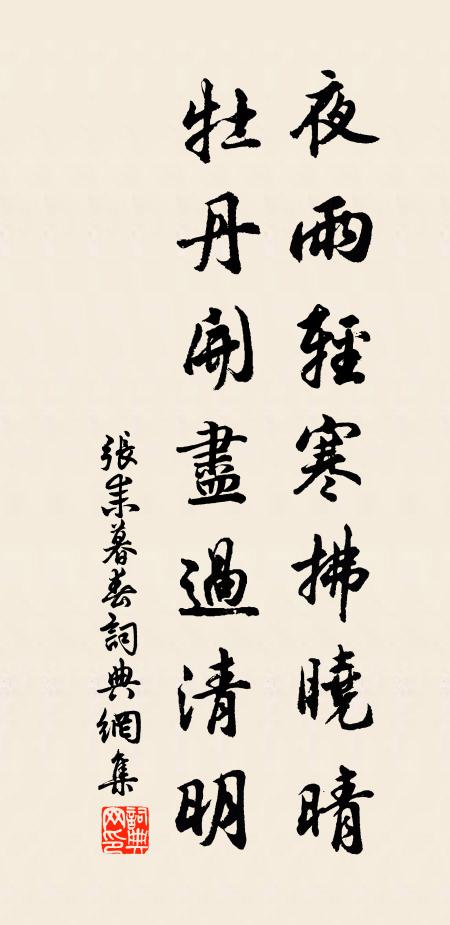 夜雨輕寒拂曉晴
牡丹開盡過清明
張耒暮春詞典網集
詞典網印